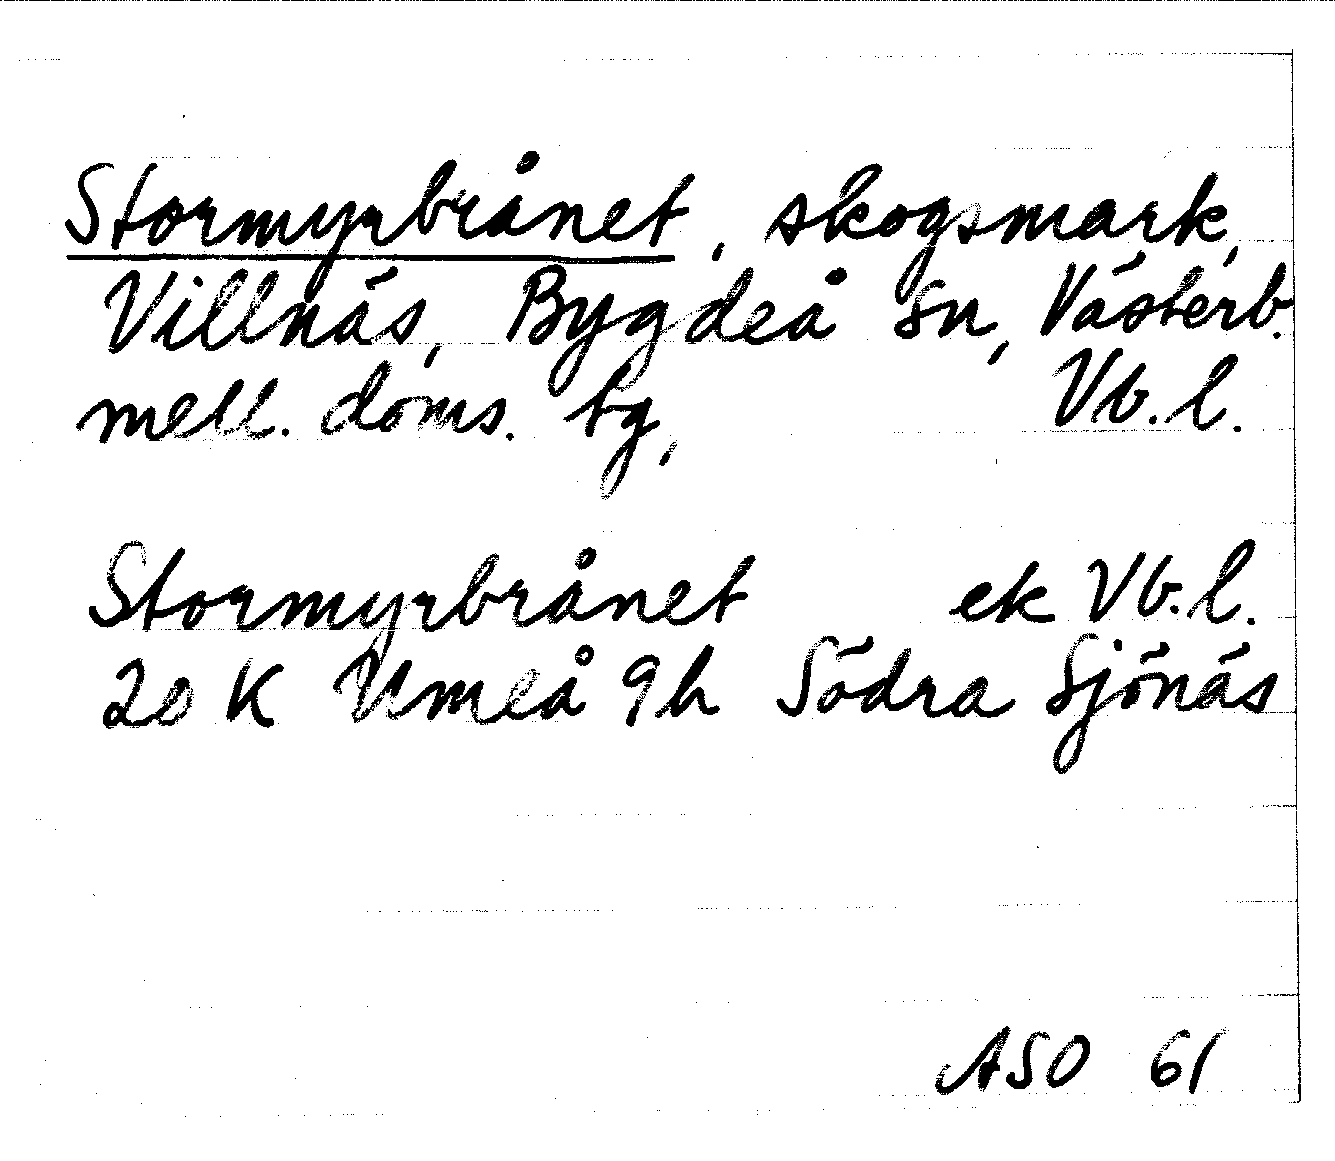 Stormyrbrånet, skogsmark,
Villnäs, Bygdeå sn, Västerb.
mell. doms. bg, Vb.l.
Stormyrbrånet ek Vb.l.
20 K Umeå 9h Södra Sjönäs
ASO 61